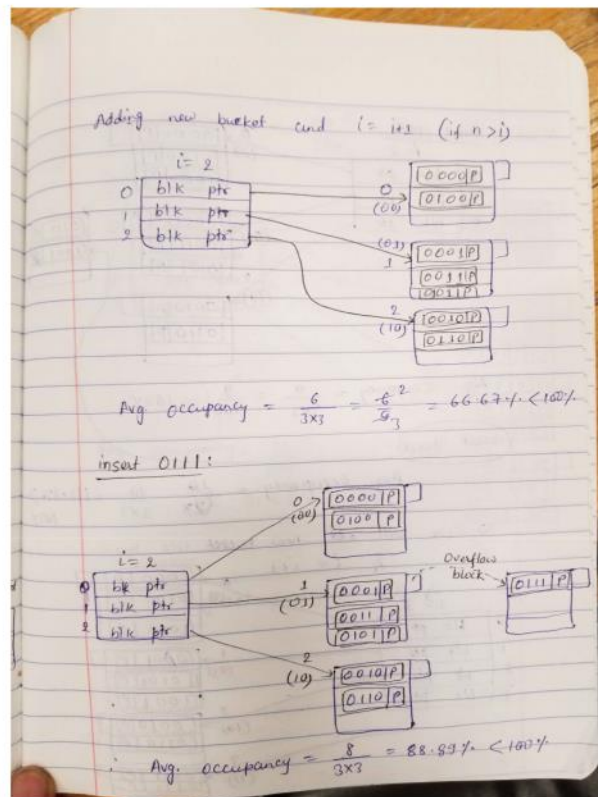 Adding new bucket and i = i+1 (if n>i)
i = 2
0 blk ptr
1 blk ptr
2 blk ptr
0
(00)
0000 P
0100 P
(01)
1
0001 P
0011 P
0101 P
2
(10)
0010 P
0110 P
Avg occupancy = 6 / 3x3 = 6 / 9 2 3 = 66.67% < 100%
insert 0111:
0
(00)
0000 P
0100 P
i = 2
0 blk ptr
1 blk ptr
2 blk ptr
1
(01)
0001 P
0011 P
0101 P
Overflow
block
0111 P
2
(10)
0010 P
0110 P
Avg. occupancy = 8 / 3x3 = 88.89% < 100%